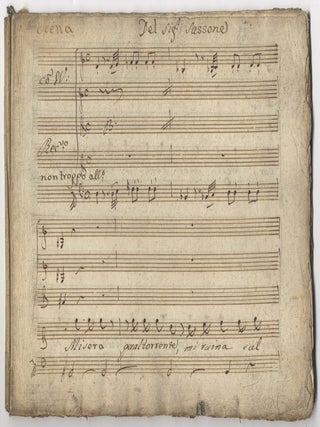 Scena Del sigr. Sassone
co. W.
Recvo.
non troppo allo.
Misera qual torrente, mi ruina sul